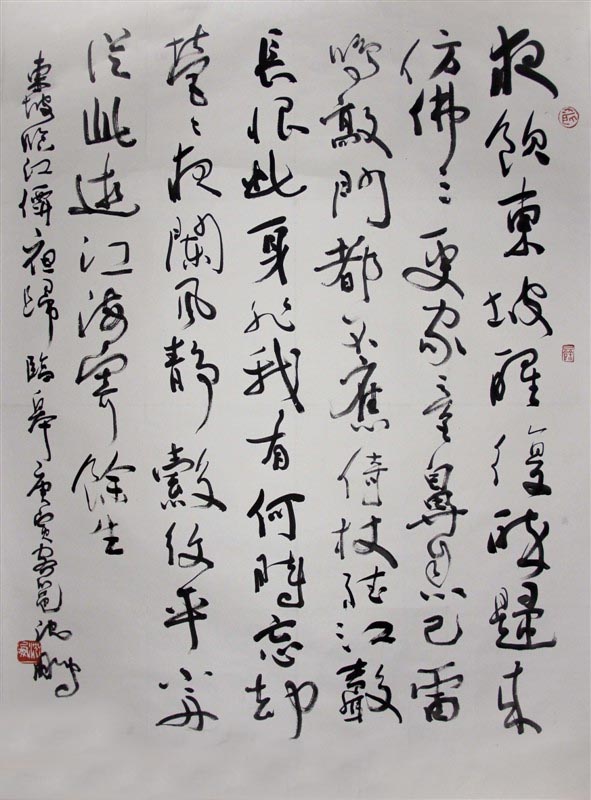 夜飲東坡醒復醉歸來
仿佛三更家童鼻息已雷
鳴敲門都不應倚杖聽江聲
長恨此身非我有何時忘却
營〻夜闌風靜縠紋平小舟
從此逝江海寄餘生
東坡臨江僊夜歸臨皋庚寅沈鵬